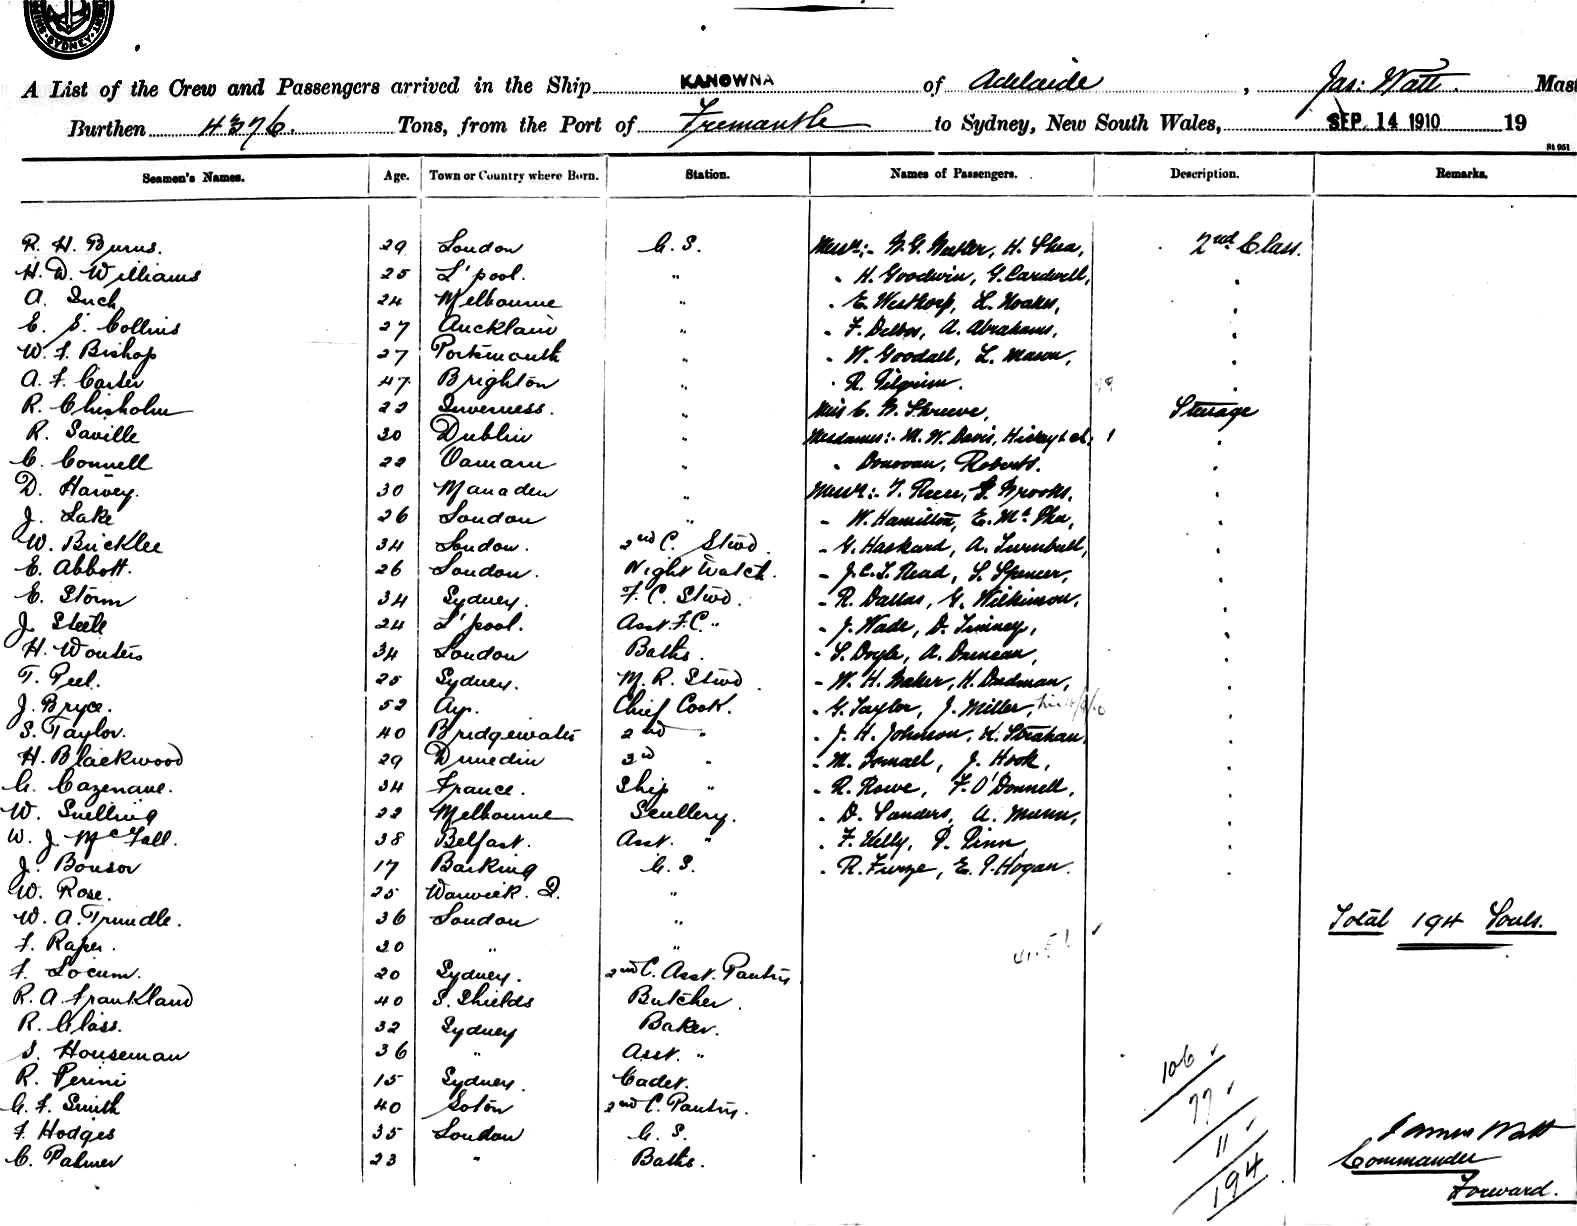 SYDNEY
A List of the Crew and Passengers arrived in the Ship KANOWNA of Adelaide, Jas: Watt. Mast
Burthen 4376. Tons, from the Port of Fremantle to Sydney, New South Wales, SEP. 14 1910 19
Seamen's Names. Age. Town or Country where Born. Station. Names of Passengers. Description. Remarks.
R. H. Burns. 29 London G. S. Messrs:- H. Shea, 2nd Class.
H. D. Williams 25 L'pool. " " H. Goodwin, G. Cardwell, "
A. Inch 24 Melbourne " " E. Westhorp, L. Noakes, "
E. S. Collins 27 Aucklaind " " F. Delbos, A. Abrahams, "
W. F. Bishop 27 Portsmouth " " W. Goodall, L. Mason, "
A. F. Carter 47 Brighton " " R. Pilgrim. "
R. Chisholm 22 Inverness. " Miss C. Shreeve, Steerage
R. Saville 30 Dublin " Mesdames:- M. W. Davis, Hickey & ch. 1 "
C. Connell 22 Oamaru " " Donovan, Roberts. "
D. Harvey. 30 Manaden " Messrs:- T. Reee, Brooks, "
J. Lake 26 London " " W. Hamilton, E. "
W. Bricklee 34 London. 2nd C. Stwd. " G. Haskard, A. Turnbull, "
E. Abbott. 26 London. Night Watch. " J. C. T. Read, S. Spencer, "
E. Storm 34 Sydney. F. C. Stwd. " R. Dallas, G. Wilkinson, "
J. Steele 24 L'pool. Asst. F.C. " " J. Wade, D. Timney, "
H. Wouters 34 London Baths. " S. Doyle, A. Duncan, "
T. Peel. 25 Sydney. M. R. Stwd. " W. H. Baker, H. Dudman, "
J. Bryce. 52 Ayr. Chief Cook. " G. Taylor, J. Miller, "
S. Taylor. 40 Bridgewater 2nd " " J. H. Johnson, K. Strahan, "
H. Blackwood 29 Dunedin 3rd " " M. Ismael, J. Hook, "
G. Cazenave. 34 France. Ship " " R. Rowe, F. O'Donnell, "
W. Snelling 22 Melbourne Scullery. " D. Sanders, A. Munn, "
W. J. McFall. 38 Belfast. Asst. " " F. Kelly, P. Pinn, "
J. Bonsor 17 Barking G. S. " R. Furze, E. P. Hogan. "
W. Rose. 25 Warwick. Q. "
W. A. Trundle. 36 London " Total 194 Souls.
F. Raper. 20 " "
F. Locum. 20 Sydney. 2nd C. Asst. Pantry
R. A. Frankland 40 S. Shields Butcher.
R. Glass. 32 Sydney Baker.
S. Houseman 36 " Asst. "
R. Perini 15 Sydney. Cadet. 106
G. F. Smith 40 Soton 2nd C. Pantry. 77
F. Hodges 35 London G. S. 11 James Watt
C. Palmer 23 " Baths. 194 Commander
Forward.